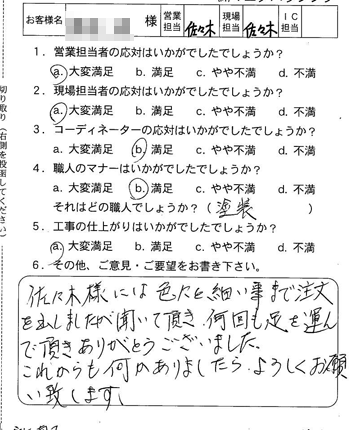 お客様名 様 営業担当 佐々木 現場担当 佐々木 IC担当
1．営業担当者の応対はいかがでしたでしょうか？
a. 大変満足 b. 満足 c. やや不満 d. 不満
2．現場担当者の応対はいかがでしたでしょうか？
a. 大変満足 b. 満足 c. やや不満 d. 不満
3．コーディネーターの応対はいかがでしたでしょうか？
a. 大変満足 b. 満足 c. やや不満 d. 不満
4．職人のマナーはいかがでしたでしょうか？
a. 大変満足 b. 満足 c. やや不満 d. 不満
それはどの職人でしょうか？（塗装 ）
5．工事の仕上がりはいかがでしたでしょうか？
a. 大変満足 b. 満足 c. やや不満 d. 不満
6．その他、ご意見・ご要望をお書き下さい。
佐々木様には色々と細い事まで注文
を出しましたが聞いて頂き 何回も足を運ん
で頂きありがとうございました。
これからも何かありましたら よろしくお願
い致します。
切り取り（右側を投函してください）